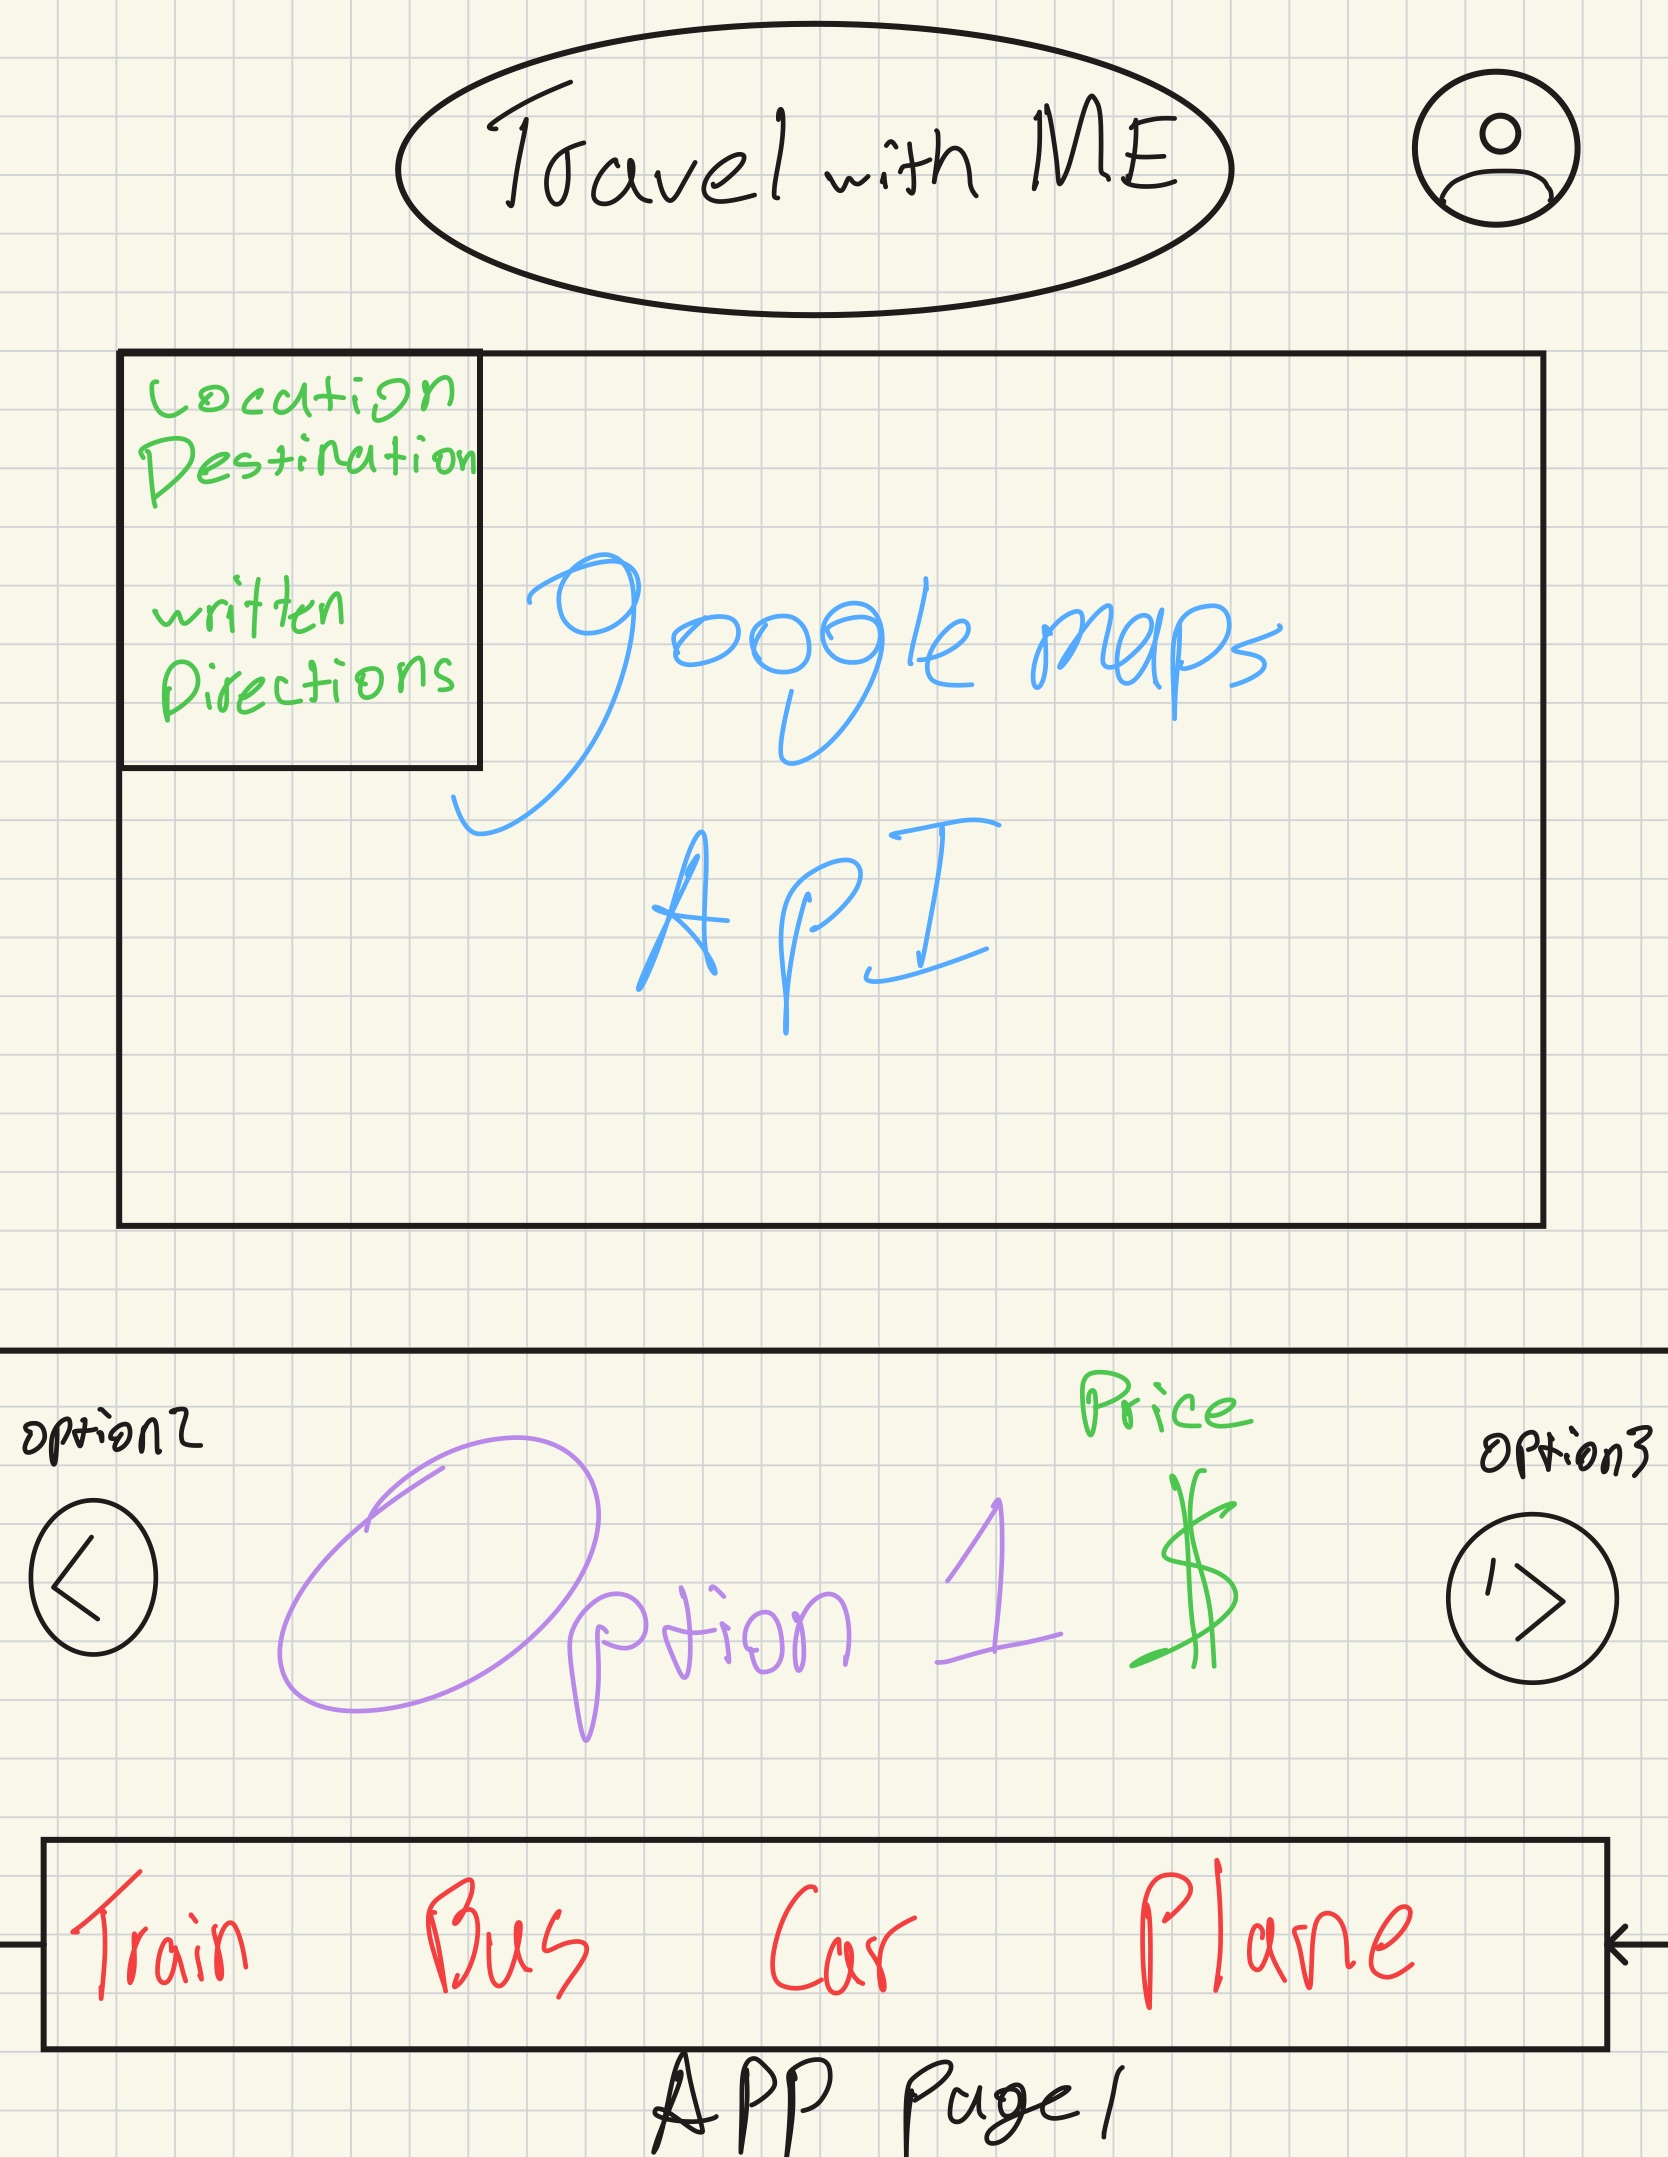 Travel with ME
Location
Destination
written
Directions
google maps
API
Price
option2
option3
Option 1 $
<
>
Train Bus Car Plane
APP Page 1